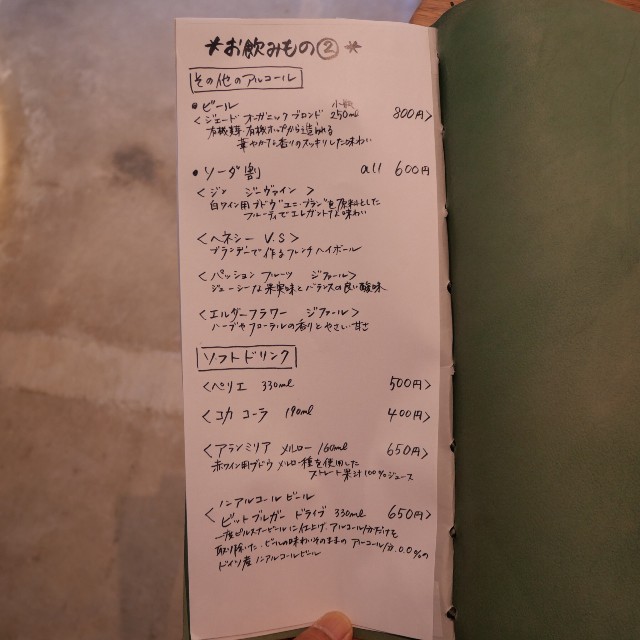 ＊お飲みもの②＊
その他のアルコール
・ビール 小瓶
＜ジェード オーガニックブロンド 250ml 800円＞
有機麦芽・有機ホップから造られる
華やかな香りのスッキリした味わい
・ソーダ割 all 600円
＜ジン ジーヴァイン＞
白ワイン用ブドウ"ユニ・ブラン"を原料とした
フルーティでエレガントな味わい
＜ヘネシー V.S＞
ブランデーで作るフレンチハイボール
＜パッションフルーツ ジファール＞
ジューシーな果実味とバランスの良い酸味
＜エルダーフラワー ジファール＞
ハーブやフローラルの香りとやさしい甘さ
ソフトドリンク
＜ペリエ 330ml 500円＞
＜コカコーラ 190ml 400円＞
＜アランミリア メルロー 160ml 650円＞
赤ワイン用ブドウ メルロー種を使用した
ストレート果汁100%ジュース
ノンアルコールビール
＜ビットブルガー ドライブ 330ml 650円＞
一度ピルスナービールに仕上げ、アルコール分だけを
取り除いた、ビールの味わいそのままの アルコール分0.0%の
ドイツ産ノンアルコールビール